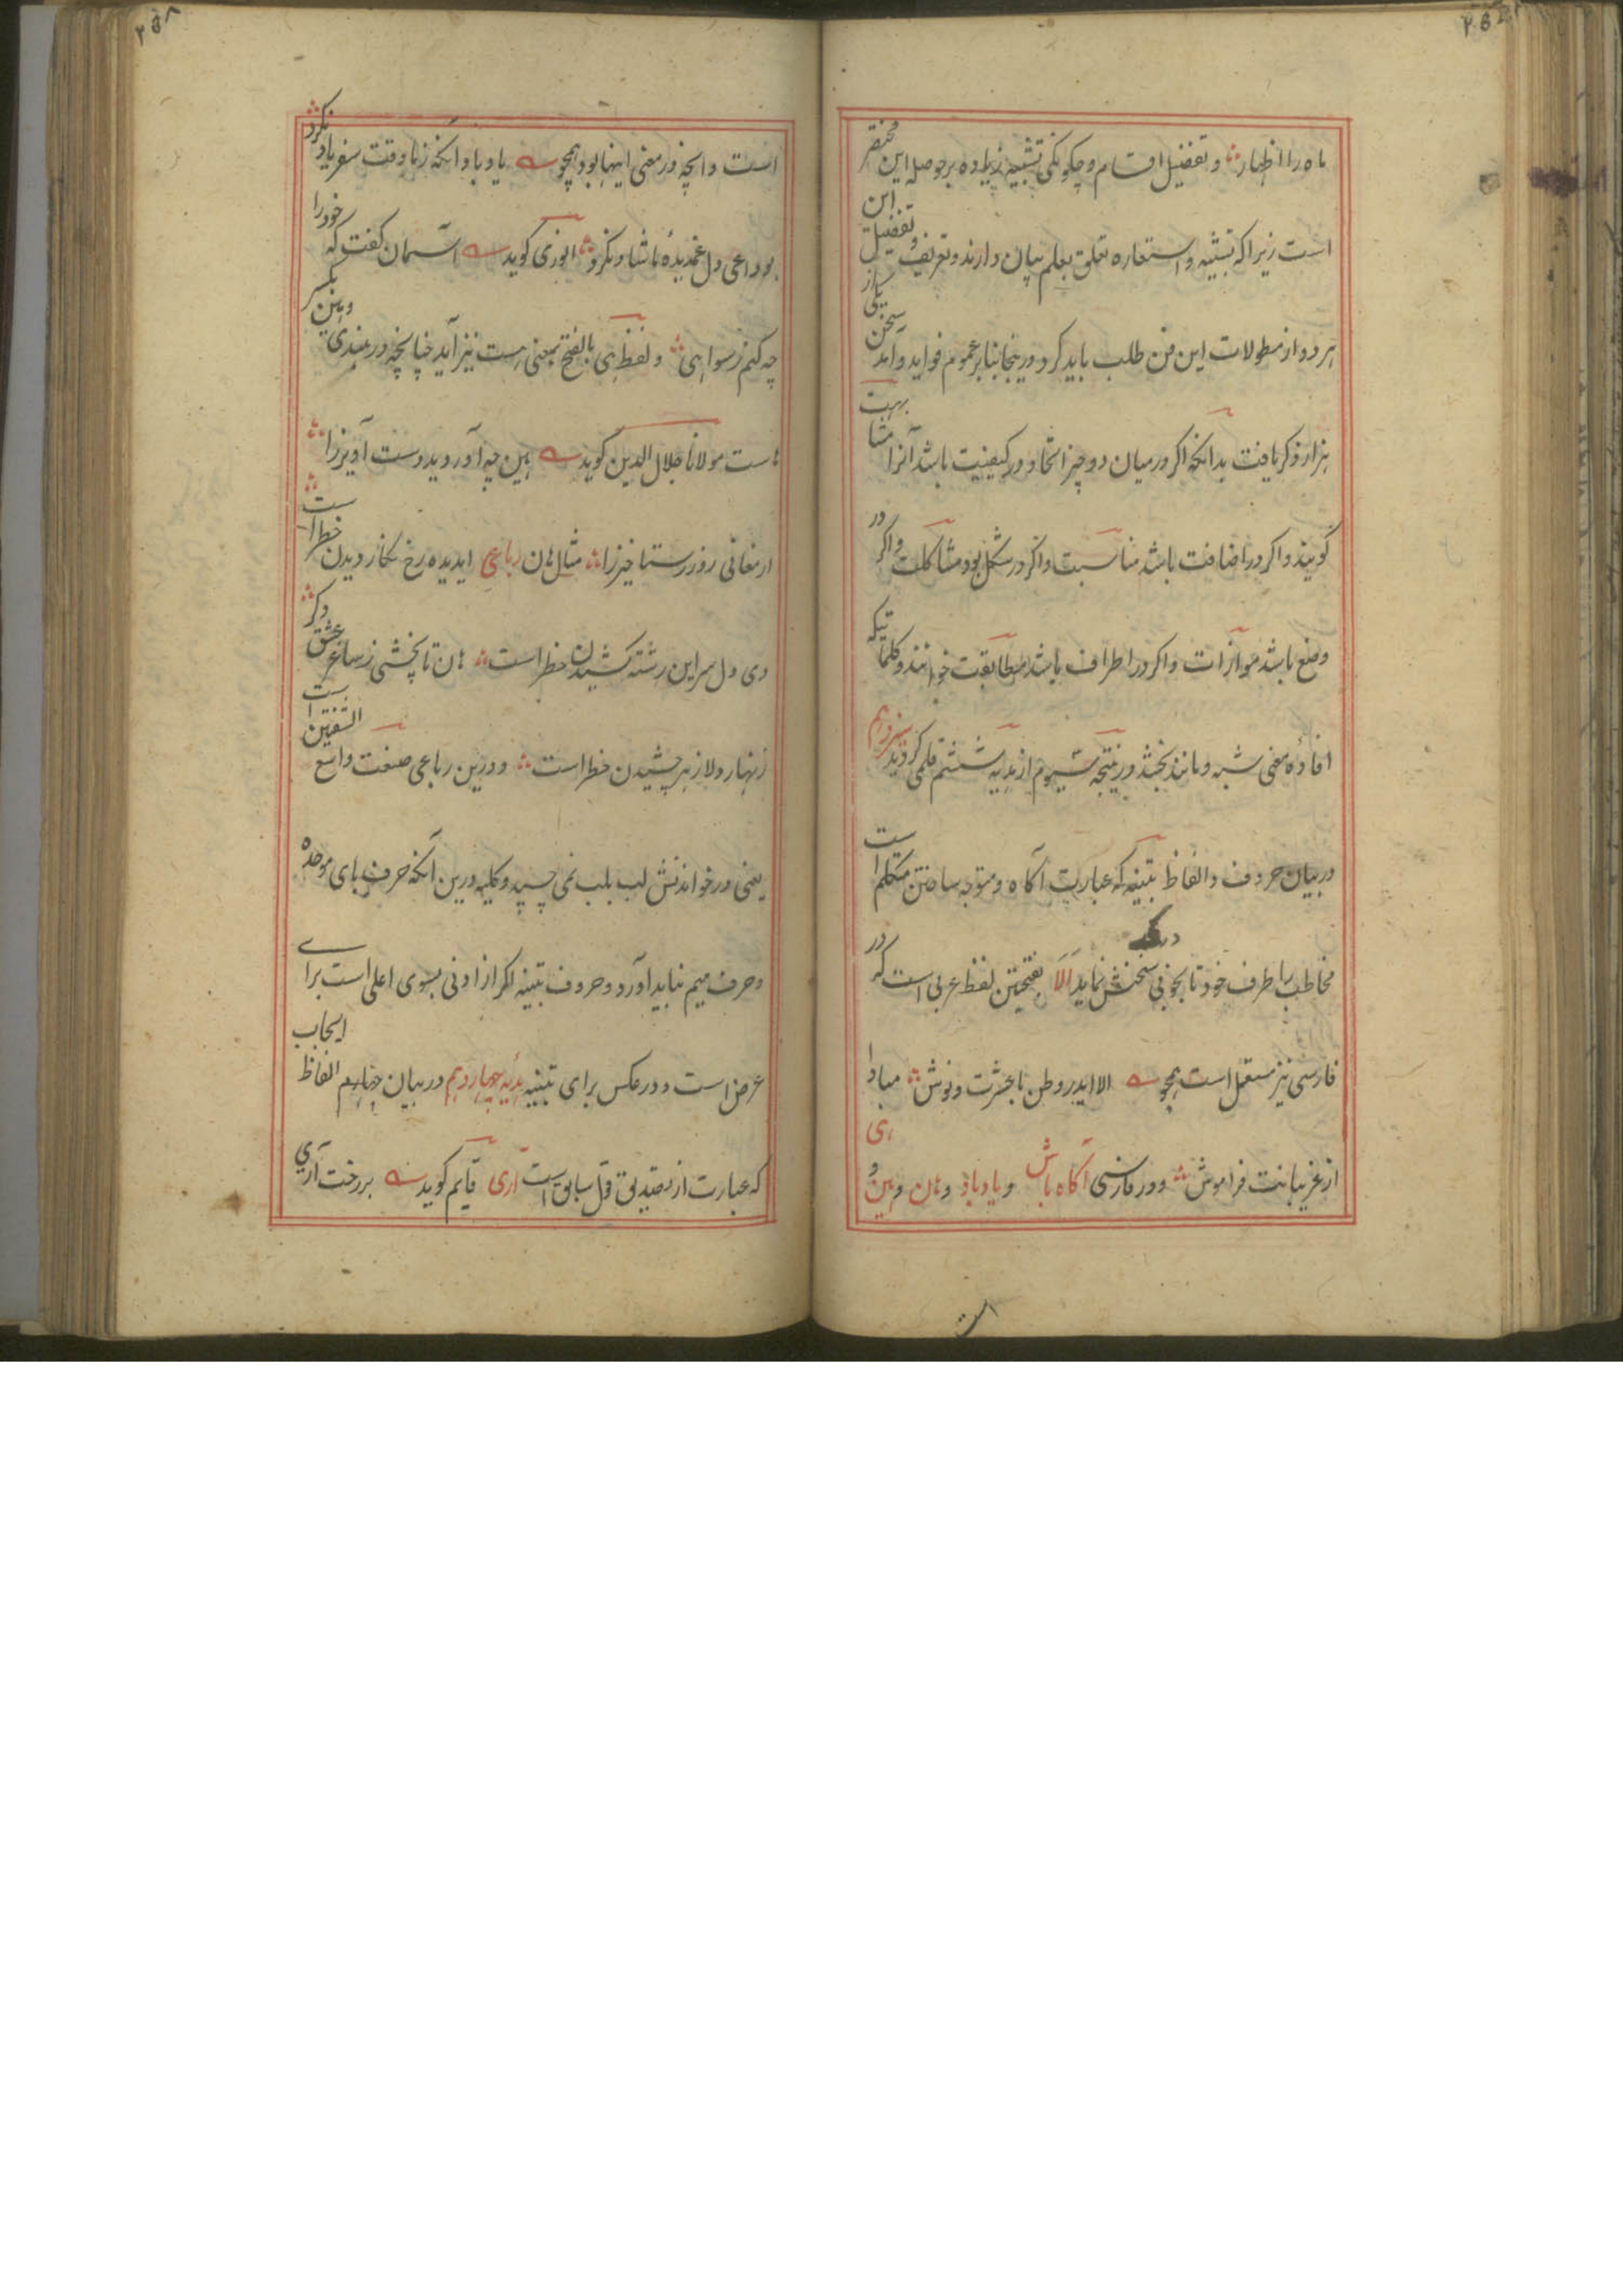 ماه را اظهار و تفضیل اقسام و چکونکی تشبیه زیاده بر حوصله این مختصر
است زیرا که تشبیه و استعاره تعلق بعلم بیان دارند و تعریف و تفضیل این
هر دو از مطولات این فن طلب باید کرد در ینجا بنابر عموم فواید و آمد سخن یکی از
هزار ذکر یافت بدانکه اکر در میان دو چیز اتحاد در کیفیت باشد آنرا مشابهت
کویند و اکر در اضافت باشد مناسبت و اکر در شکل بود مشاکلت و اکر در
وضع باشد موازات و اکر در اطراف باشد مطابقت خوانند و کلماتیکه
افادهٔ معنی شبه و مانند بخشد در نتیجه سیوم از هدیه ششم قلمی کردید
در بیان حروف و الفاظ تنبیه که عبارت آکاه و متوجه ساختن متکلم است
مخاطب را طرف خود تا بخوبی سخنش نماید اَلَا بفتحتین لفظ عربی است که در
فارسی نیز مستعمل است همچو الا اید روطن با عشرت و نوش مبادا
از غریبانت فراموش و در فارسی آکاه باش و یاد باد و هان و هین و هی
۲۵۸
است و آنچه در معنی اینها بود همچو یاد باد آنکه زما وقت سفر یاد نکرد
بوداعی دل غمدیدهٔ ما شاد نکرد انوری کوید آسمان کفت که خود را
چه کنم زسوا هی و لفظ هی بالفتح بمعنی هست نیز آید چنانچه در هندی و هین بکسر
هاست مولانا جلال الدین کوید هین چه آوردید دست آویز را
ارمغانی روز رستاخیز را مثال هان رباعی ایدیده رخ نکار دیدن خطر است
دی دل سر این رشته کشیدن خطر است هان تا نچشی ز ساغر عشق دکر
زنهار دلا زهر چشیدن خطر است و درین رباعی صنعت واسع الشفتین است
یعنی در خواندنش لب بلب نمی چسپد و کلیه درین آنکه حرف بای موحده
و حرف میم نباید آورد و حروف تنبیه اکر از ادنی بسوی اعلی است برای
عرض است و در عکس برای تنبیه هدیه چهاردهم در بیان چهارم الفاظ ایجاب
که عبارت از تصدیق قول سابق است آری قایم کوید بر رخت آری